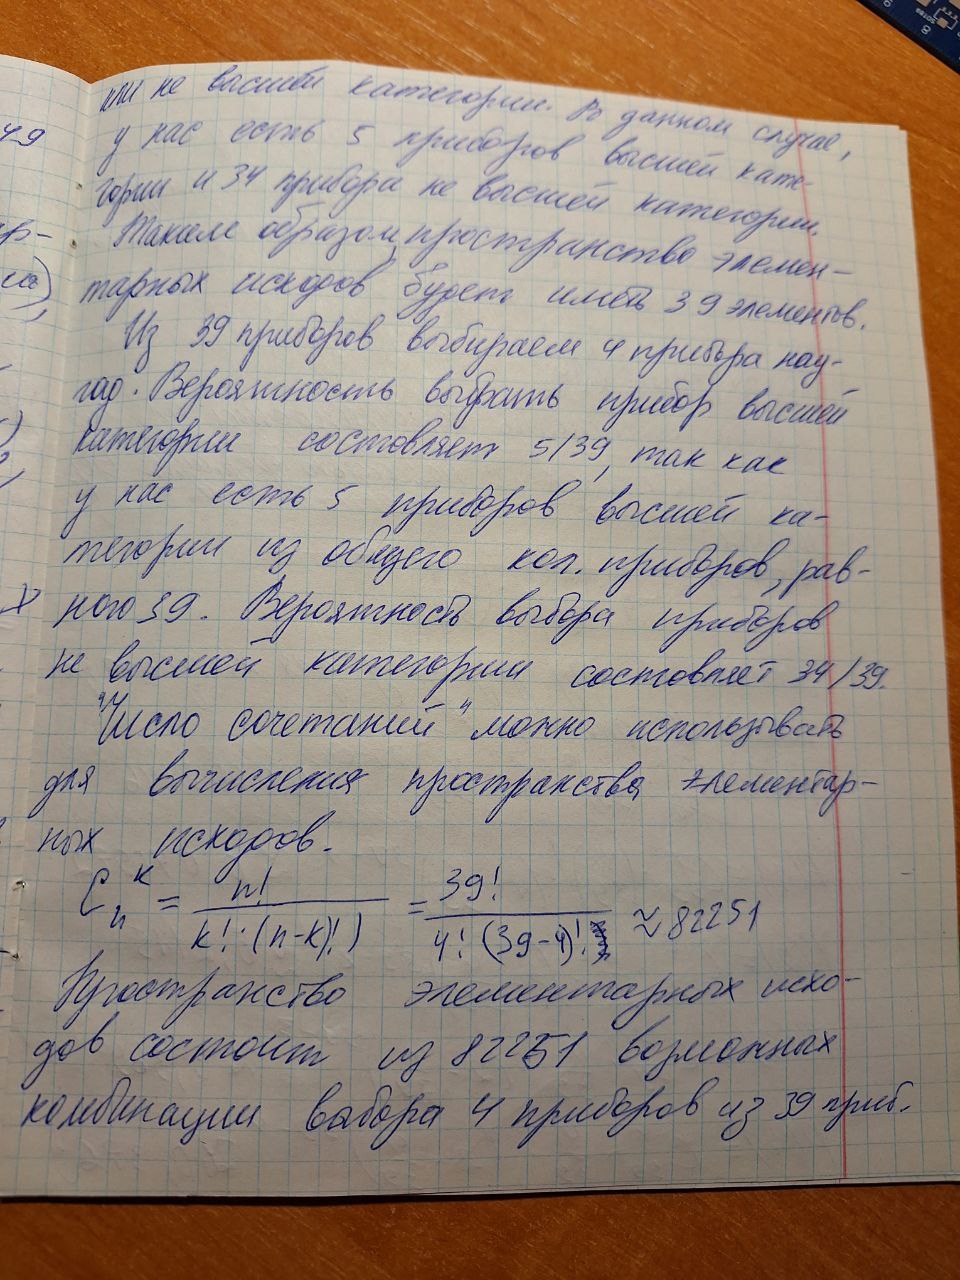 или не высшей категории. В данном случае,
у нас есть 5 приборов высшей кате-
гории и 34 прибора не высшей категории.
Таким образом, пространство элемен-
тарных исходов будет иметь 39 элементов.
Из 39 приборов выбираем 4 прибора нау-
гад. Вероятность выбрать прибор высшей
категории составляет 5/39, так как
у нас есть 5 приборов высшей ка-
тегории из общего кол. приборов, рав-
ного 39. Вероятность выбора приборов
не высшей категории составляет 34/39.
"Число сочетаний" можно использовать
для вычисления пространства элементар-
ных исходов.
C_n^k = n! / (k!·(n-k)!) = 39! / (4!(39-4)!) ≈ 82251
Пространство элементарных исхо-
дов состоит из 82251 возможных
комбинации выбора 4 приборов из 39 приб.
49